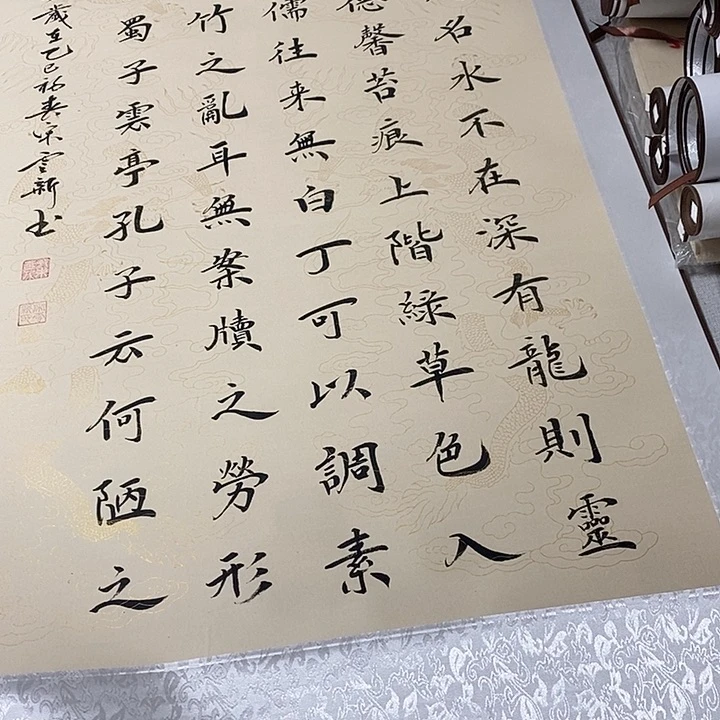 名水不在深有龍則靈
德馨苔痕上階綠草色入
儒往来無白丁可以調素
竹之亂耳無案牘之勞形
蜀子雲亭孔子云何陋之
歲在乙巳初春宋新书